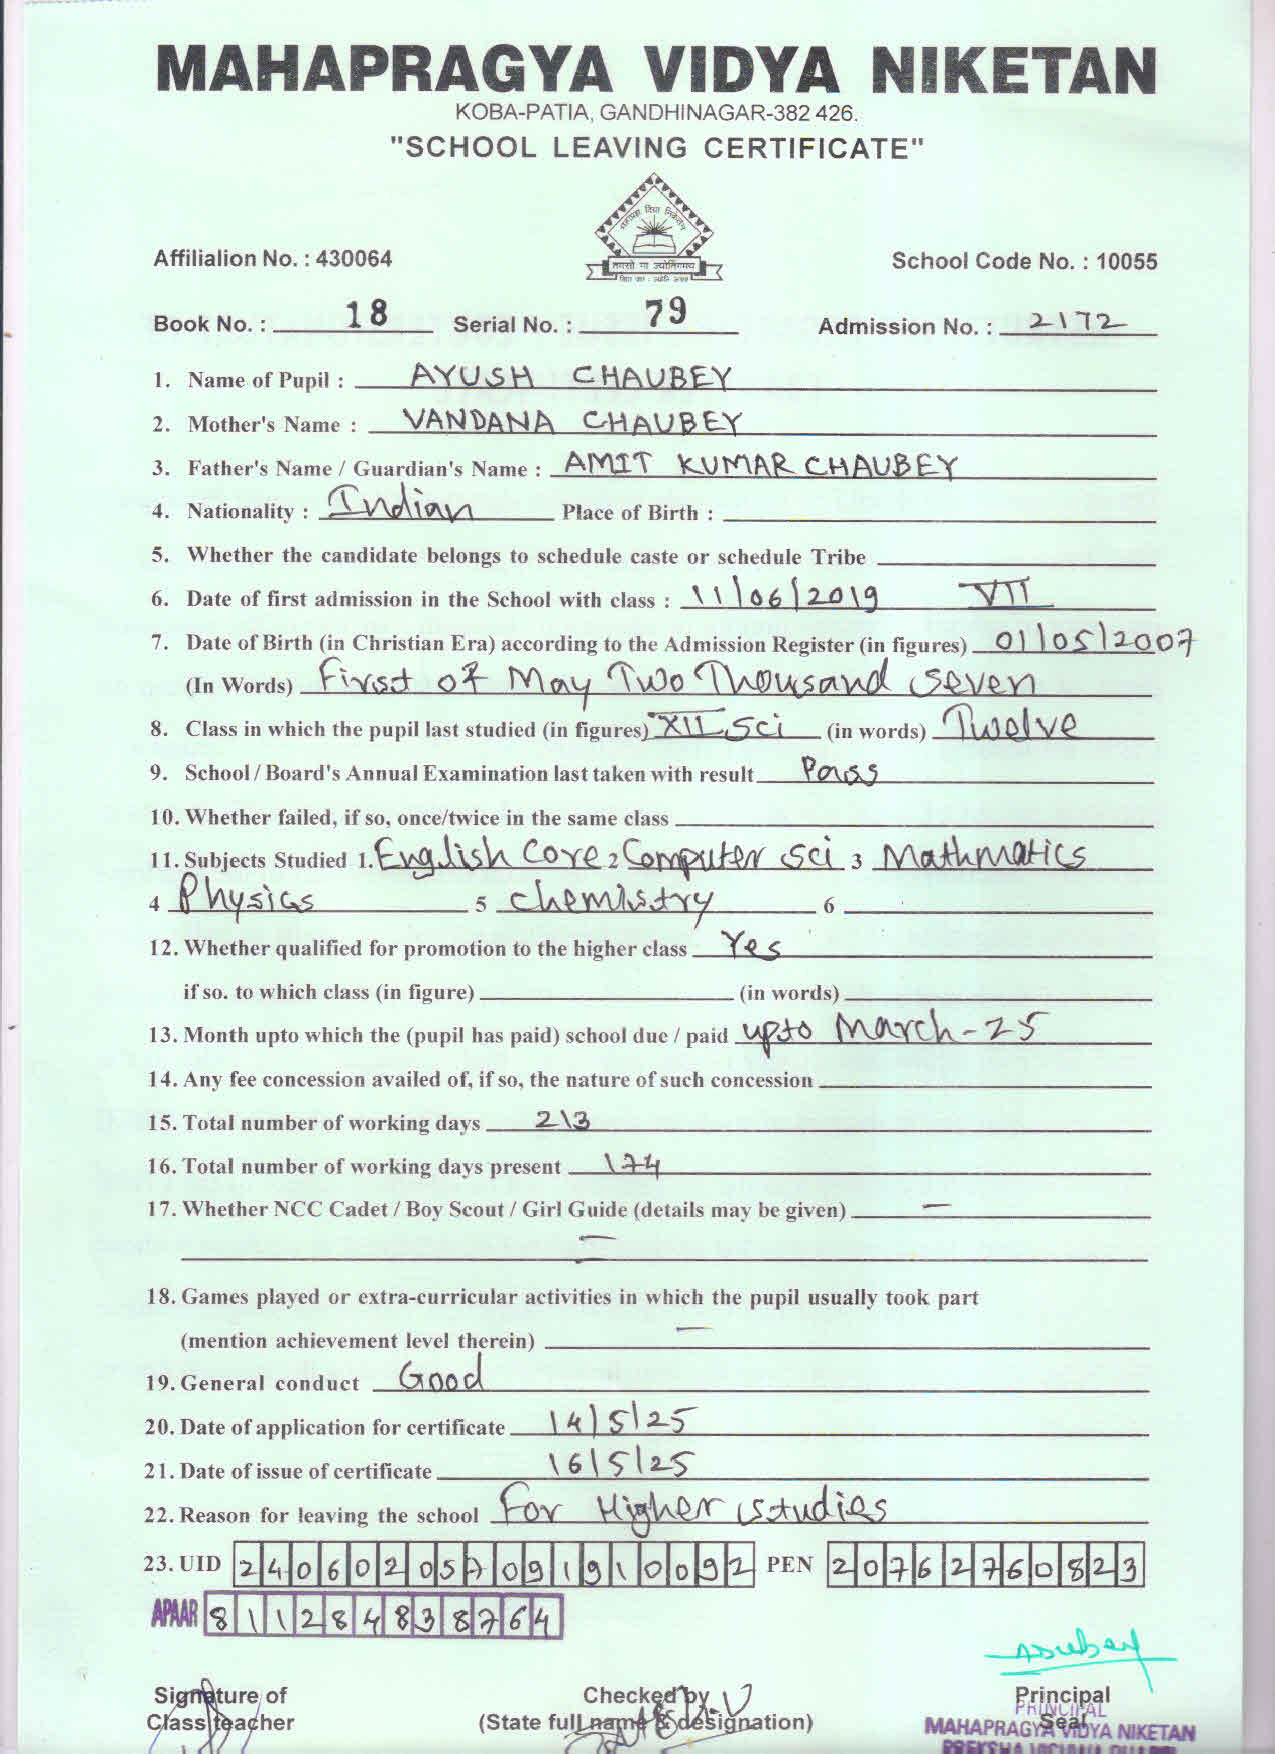 MAHAPRAGYA VIDYA NIKETAN
KOBA-PATIA, GANDHINAGAR-382 426.
"SCHOOL LEAVING CERTIFICATE"
महाप्रज्ञ विद्या निकेतन
तमसो मा ज्योतिर्गमय
Affilialion No. : 430064 School Code No. : 10055
Book No. : 18 Serial No. : 79 Admission No. : 2172
1. Name of Pupil : AYUSH CHAUBEY
2. Mother's Name : VANDANA CHAUBEY
3. Father's Name / Guardian's Name : AMIT KUMAR CHAUBEY
4. Nationality : Indian Place of Birth :
5. Whether the candidate belongs to schedule caste or schedule Tribe
6. Date of first admission in the School with class : 11/06/2019 VII
7. Date of Birth (in Christian Era) according to the Admission Register (in figures) 01/05/2007
(In Words) First of May Two Thousand Seven
8. Class in which the pupil last studied (in figures) XII Sci (in words) Twelve
9. School / Board's Annual Examination last taken with result Pass
10. Whether failed, if so, once/twice in the same class
11. Subjects Studied 1. English Core 2 Computer Sci 3 Mathmatics
4 Physics 5 Chemistry 6
12. Whether qualified for promotion to the higher class Yes
if so. to which class (in figure) (in words)
13. Month upto which the (pupil has paid) school due / paid upto March-25
14. Any fee concession availed of, if so, the nature of such concession
15. Total number of working days 213
16. Total number of working days present 174
17. Whether NCC Cadet / Boy Scout / Girl Guide (details may be given) —
18. Games played or extra-curricular activities in which the pupil usually took part
(mention achievement level therein) —
19. General conduct Good
20. Date of application for certificate 14/5/25
21. Date of issue of certificate 16/5/25
22. Reason for leaving the school For Higher Studies
23. UID 240602057091910092 PEN 20762760823
APAAR 811284838764
Signature of Checked by Principal
Class teacher (State full name & designation) Seal
PRINCIPAL
MAHAPRAGYA VIDYA NIKETAN